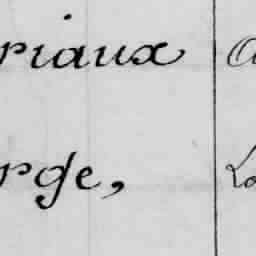 riaux
rge,